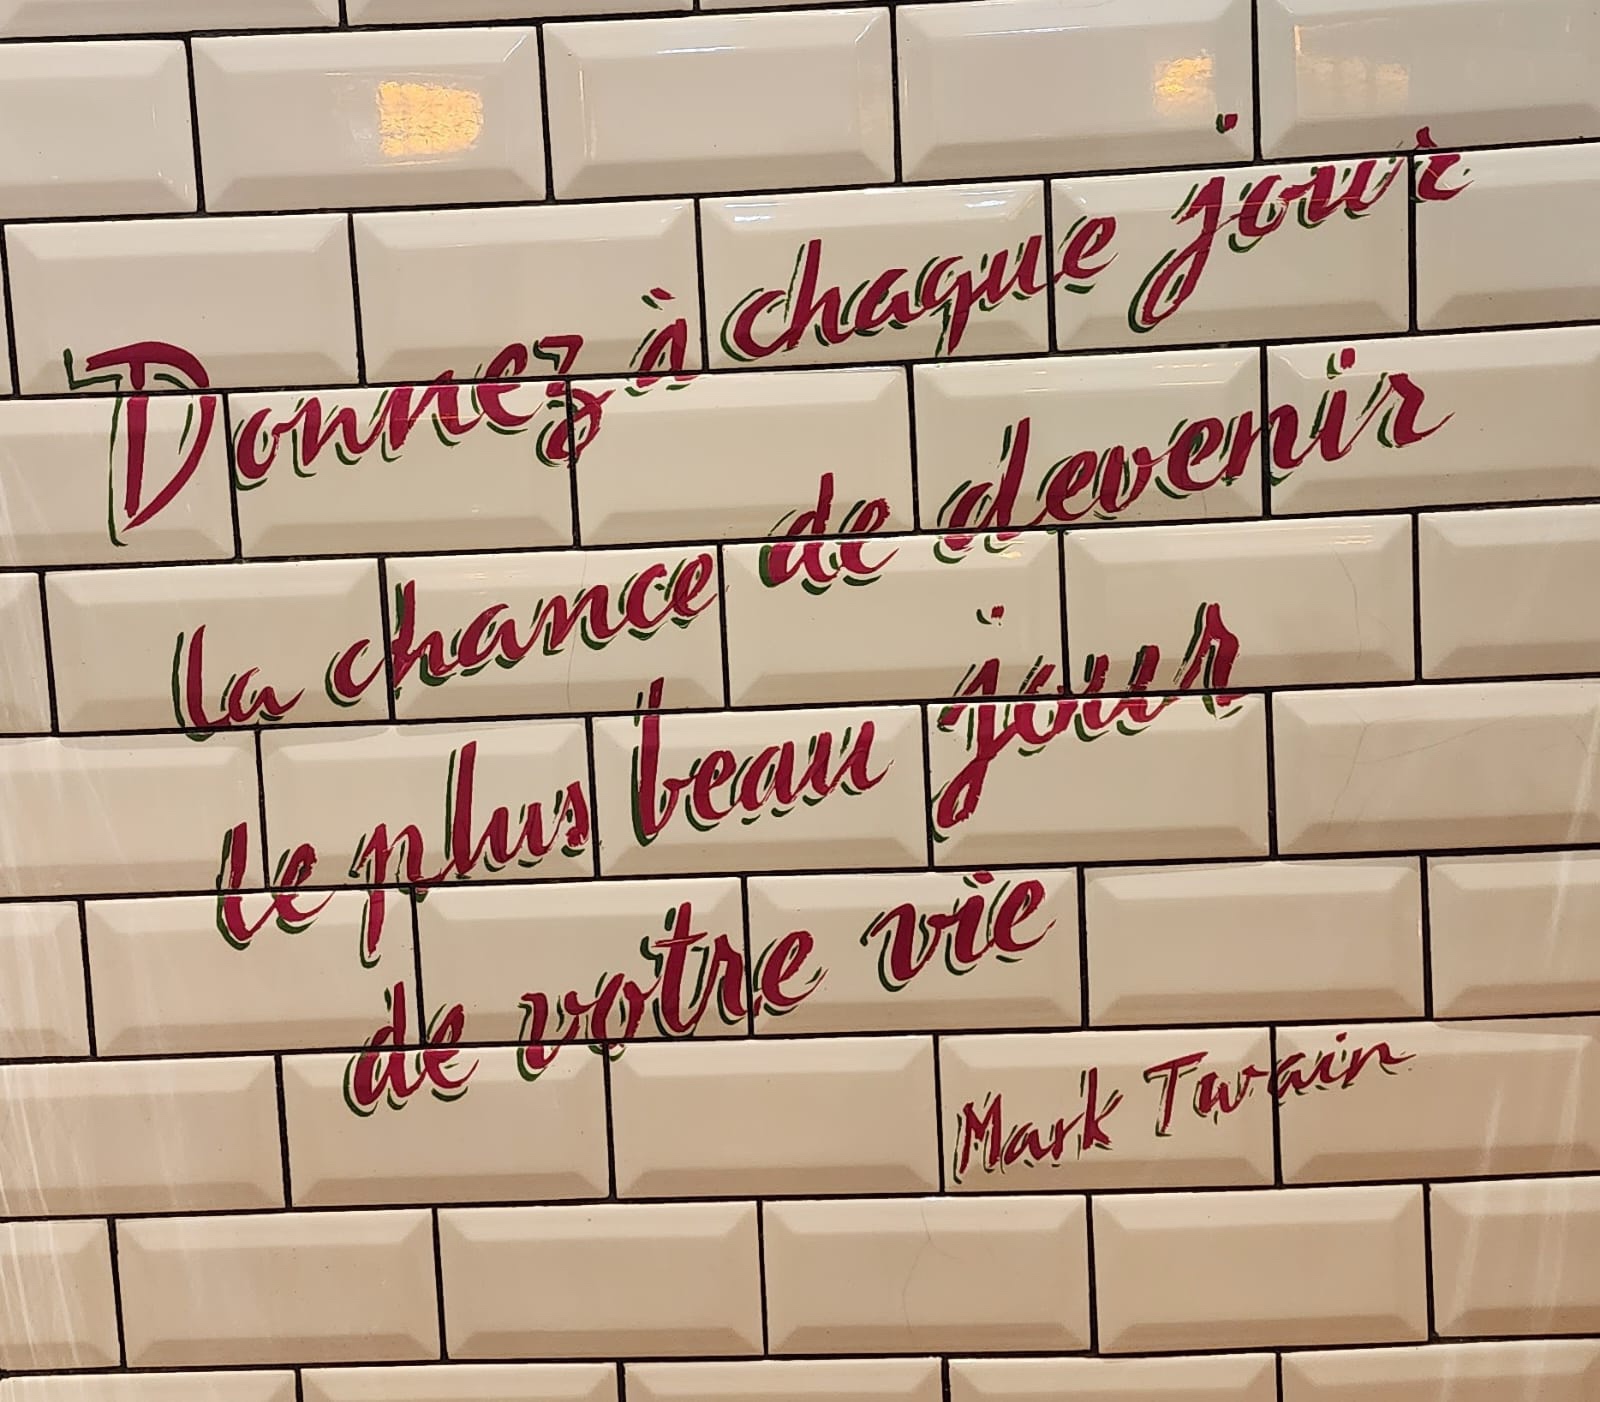 Donnez à chaque jour
la chance de devenir
le plus beau jour
de votre vie
Mark Twain